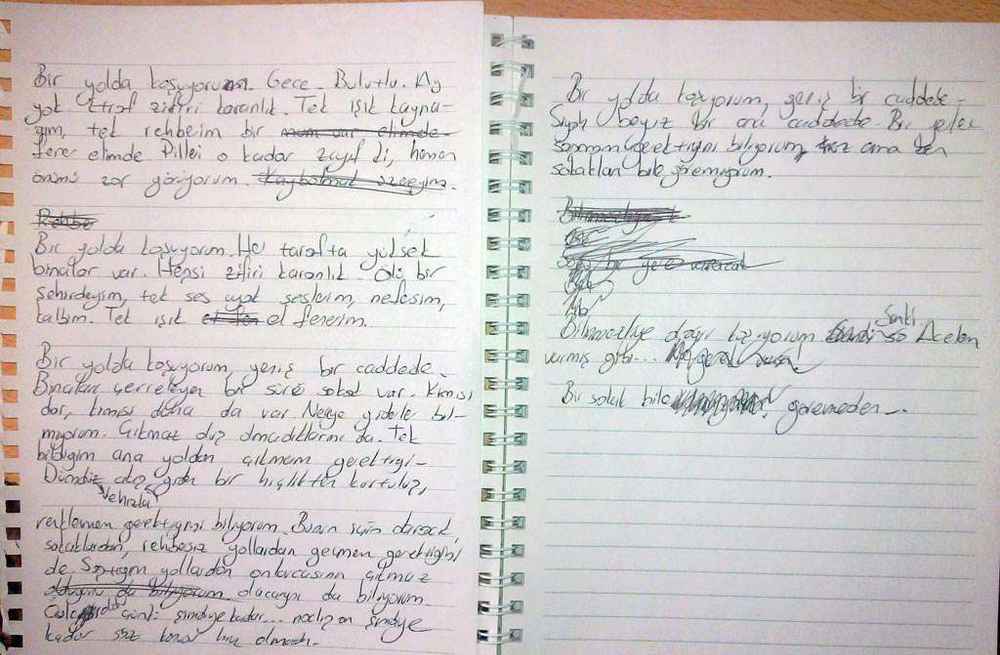 Bir yolda koşuyorum. Gece. Bulutlu. Ay
yok etraf zifiri karanlık. Tek ışık kayna-
ğım, tek rehberim bir mum var elimde
fener elimde Pilleri o kadar zayıf ki, hemen
önümü zor görüyorum. Kaybolmak üzereyim.
Rehbe
Bir yolda koşuyorum. Her tarafta yüksek
binalar var. Hepsi zifiri karanlık. Ölü bir
şehirdeyim, tek ses ayak seslerim, nefesim,
kalbim. Tek ışık el fenerim.
Bir yolda koşuyorum, geniş bir caddede.
Binaları çevreleyen bir sürü sokak var. Kimisi
dar, kimisi daha da var Nereye giderler bil-
miyorum. Çıkmaz olup olmadıklarını da. Tek
bildiğim ana yoldan çıkmam gerektiği-
Dümdüz giden bir hiçlikten kurtulup,
ve hızla
gerektiğini biliyorum. Bunun için daracık
sokaklardan, rehbersiz yollardan geçmem gerektiğini
de Saptığım yolların çıkmaz
olduğunu da biliyorum olacağını da biliyorum.
çünkü şimdiye kadar... şimdiye
kadar hiç olmadı.
Bir yolda koşuyorum, geniş bir caddede.
Siyah beyaz bir ana caddede. Bir yerden
sapmam gerektiğini biliyorum, ama ben
sokakları bile göremiyorum.
bir yere varacak
Bilinmezliğe doğru koşuyorum Sanki Acelem
varmış gibi...
Bir sokak bile göremeden...